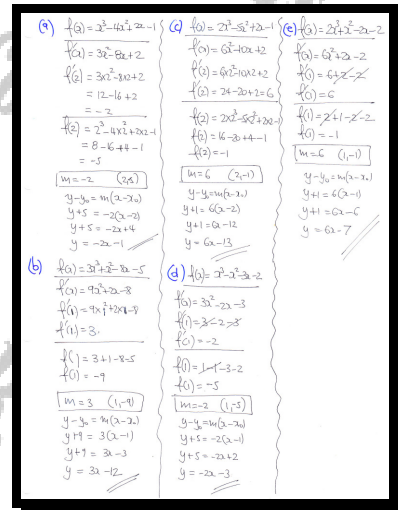 (a) f(x) = x³-4x²+2x-1
f'(x) = 3x²-8x+2
f'(2) = 3x2²-8x2+2
= 12-16+2
= -2
f(2) = 2³-4x2²+2x2-1
= 8-16+4-1
= -5
m=-2 (2,-5)
y-y₀ = m(x-x₀)
y+5 = -2(x-2)
y+5 = -2x+4
y = -2x-1
(b) f(x) = 3x³+x²-8x-5
f'(x) = 9x²+2x-8
f'(1) = 9x1²+2x1-8
f'(1) = 3.
f( ) = 3+1-8-5
f(1) = -9
m=3 (1,-9)
y-y₀ = m(x-x₀)
y+9 = 3(x-1)
y+9 = 3x-3
y = 3x-12
(c) f(x) = 2x³-5x²+2x-1
f'(x) = 6x²-10x+2
f'(2) = 6x2²-10x2+2
f'(2) = 24-20+2=6
f(2) = 2x2³-5x2²+2x2-1
f(2) = 16-20+4-1
f(2) = -1
m=6 (2,-1)
y-y₀=m(x-x₀)
y+1 = 6(x-2)
y+1 = 6x-12
y = 6x-13
(d) f(x) = x³-x²-3x-2
f'(x) = 3x²-2x-3
f'(1) = 3-2-3
f'(1) = -2
f(1) = 1-1-3-2
f(1) = -5
m=-2 (1,-5)
y-y₀=m(x-x₀)
y+5 = -2(x-1)
y+5 = -2x+2
y = -2x-3
(e) f(x) = 2x³+x²-2x-2
f'(x) = 6x²+2x-2
f'(1) = 6+2-2
f'(1) = 6
f(1) = 2+1-2-2
f(1) = -1
m=6 (1,-1)
y-y₀=m(x-x₀)
y+1 = 6(x-1)
y+1 = 6x-6
y = 6x-7